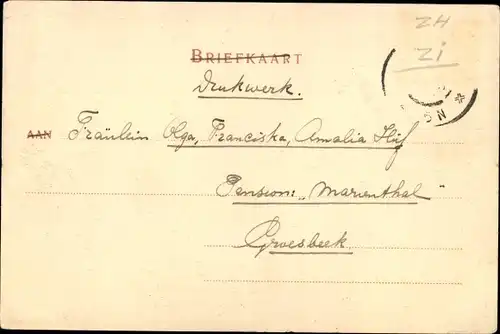 ZH
ZI
BRIEFKAART
Drukwerk.
AAN Fräulein Olga, Franciska, Amalia Hüf
Pension: „Marienthal"
Groesbeek